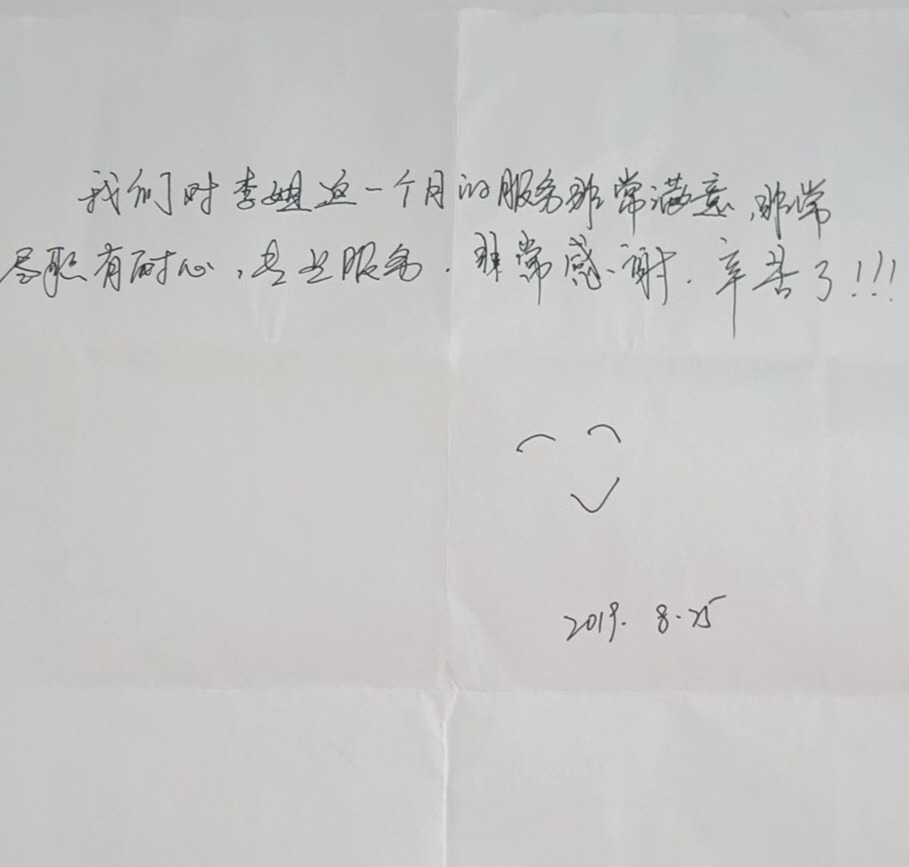 我们对李姐这一个月的服务非常满意,非常
尽职有耐心,专业服务.非常感谢.辛苦了!!!
2019.8.25